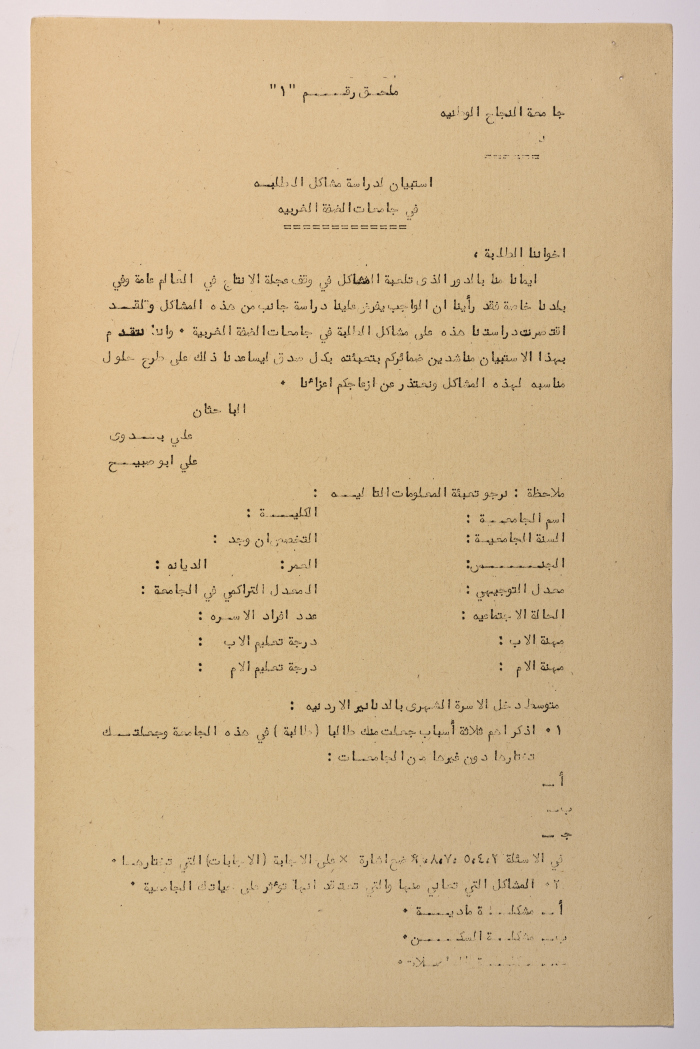 ملحق رقـــم "١"
جامعة النجاح الوطنيه
======
استبيان لدراسة مشاكل الطلبـه
في جامعات الضفة الغربيه
=============
اخواننا الطلبة ،
ايمانا منا بالدور الذى تلعبة المشاكل في وقف عجلة الانتاج في العالم عامة وفي
بلدنا خاصة فقد رأينا ان الواجب يفرض علينا دراسة جانب من هذه المشاكل ولقــد
اقتصرت دراستنا هذه على مشاكل الطلبة في جامعات الضفة الغربية ٠ واننا نتقدم
بهذا الاستبيان مناشدين ضمائركم بتعبئته بكل صدق ليساعدنا ذلك على طرح حلول
مناسبه لهذه المشاكل ونعتذر عن ازعاجكم اعزائنا ٠
الباحثان
علي بــدوى
علي ابو صبيــح
ملاحظة : نرجو تعبئة المعلومات التاليــه :
اسم الجامعــة : الكليــة :
السنة الجامعيـة : التخصص ان وجد :
الجنــــس: العمر: الديانه :
معدل التوجيهي : المعدل التراكمي في الجامعة :
الحالة الاجتماعيه : عدد افراد الاسـره :
مهنة الاب : درجة تعليم الاب :
مهنة الام : درجة تعليم الام :
متوسط دخل الاسرة الشهرى بالدنانير الاردنيه :
١٠ اذكر اهم ثلاثة أسباب جعلت منك طالبا (طالبة ) في هذه الجامعة وجعلتــك
تختارها دون غيرها من الجامعـات :
أ ــ
ب ــ
جـ ــ
في الاسئلة ٢،٤،٥،٧،٨،٩ ضع اشارة × على الاجابة (الاجابات) التي تختارهـا ٠
٢٠ المشاكل التي تعاني منها والتي تعتقد انها تؤثر على حياتك الجامعية ٠
أ ــ مشكلــة ماديــة ٠
ب ــ مشكلــة السكــن ٠